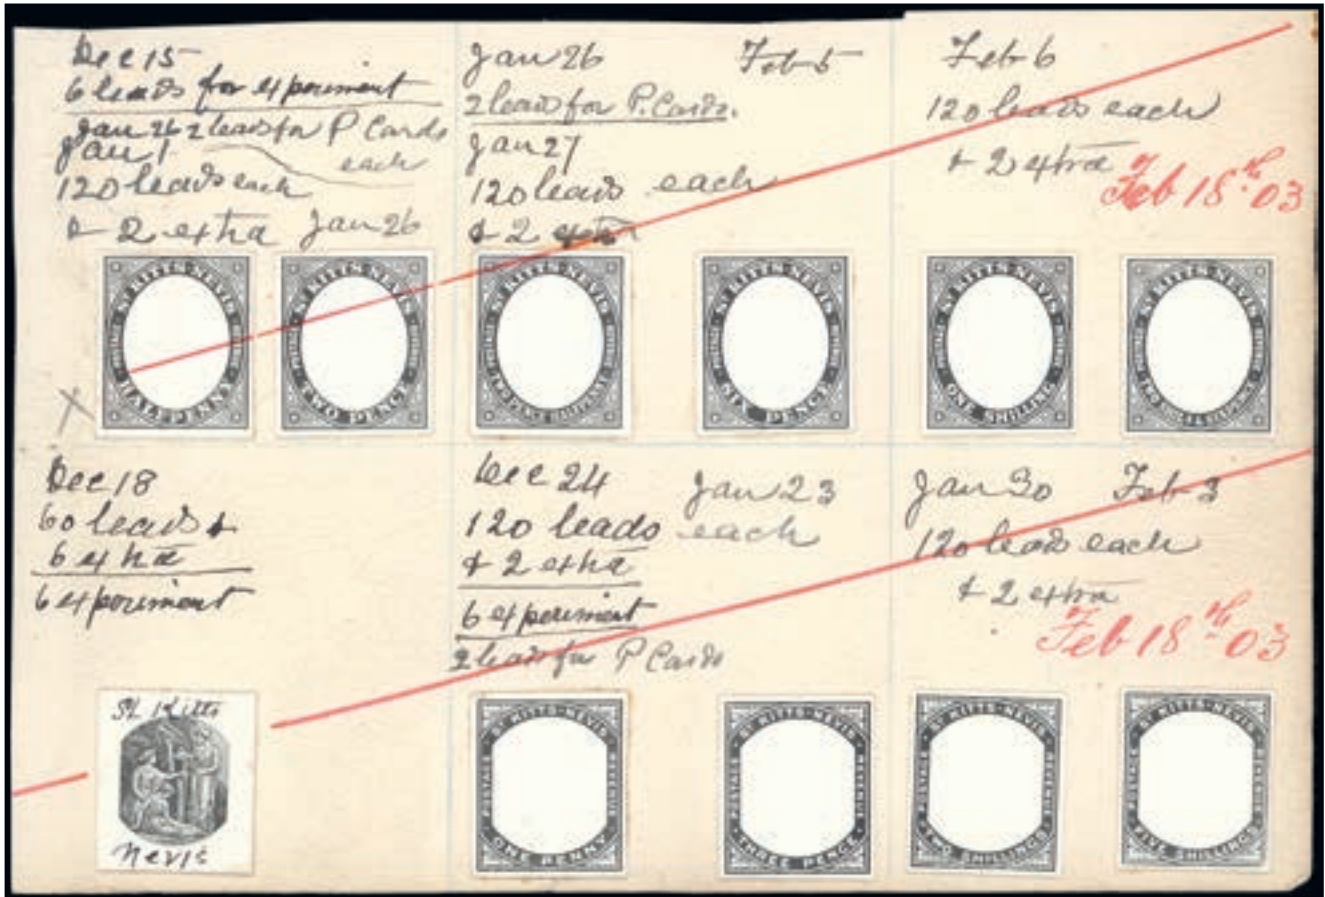 Dec 15
6 leads for experiment
Jan 26 2 leads for P Cards
Jan 1 each
120 leads each
& 2 extra Jan 26
Jan 26 Feb 5
2 leads for P. Cards.
Jan 27
120 leads each
& 2 extra
Feb 6
120 leads each
& 2 extra
Feb 18th 03
ST KITTS-NEVIS
POSTAGE REVENUE
HALFPENNY
ST KITTS-NEVIS
POSTAGE REVENUE
TWO PENCE
ST KITTS-NEVIS
POSTAGE REVENUE
TWO PENCE HALFPENNY
ST KITTS-NEVIS
POSTAGE REVENUE
SIX PENCE
ST KITTS-NEVIS
POSTAGE REVENUE
ONE SHILLING
ST KITTS-NEVIS
POSTAGE REVENUE
X
Dec 18
60 leads &
6 extra
6 experiment
Dec 24 Jan 23
120 leads each
& 2 extra
6 experiment
2 leads for P Cards
Jan 30 Feb 3
120 leads each
& 2 extra
Feb 18th 03
St. Kitts
Nevis
ST KITTS-NEVIS
POSTAGE REVENUE
ONE PENNY
ST KITTS-NEVIS
POSTAGE REVENUE
THREE PENCE
ST KITTS-NEVIS
POSTAGE REVENUE
TWO SHILLINGS
ST KITTS-NEVIS
POSTAGE REVENUE
FIVE SHILLINGS